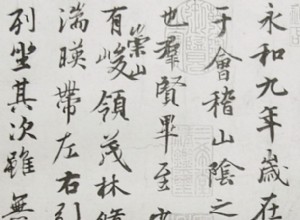 永和九年歲在
于會稽山陰之
也羣賢畢至少
有崇山峻領茂林脩
湍暎帶左右引
列坐其次雖無